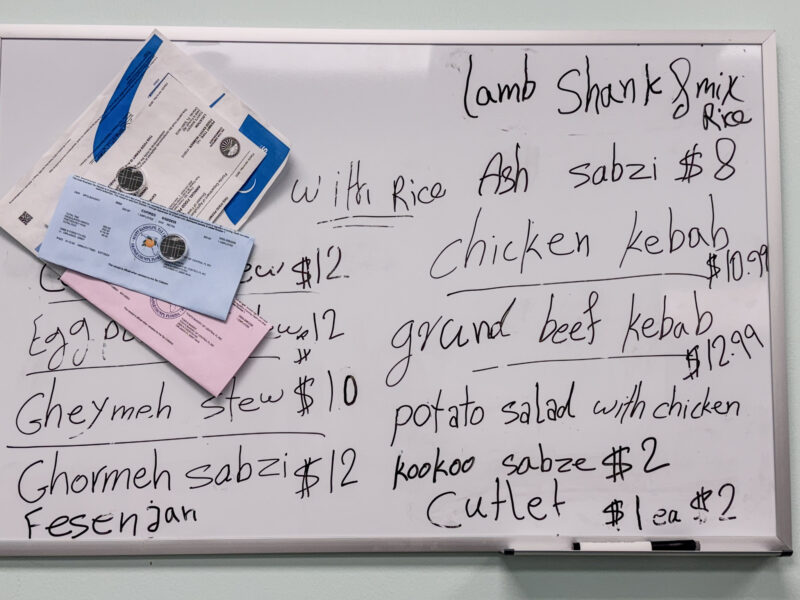 Lamb Shank & mix
Rice
with Rice
Ash sabzi $8
chicken kebab
$10.99
$12
grund beef kebab
$12.99
$12
Gheymeh stew $10
potato salad with chicken
Ghormeh sabzi $12
kookoo sabze $2
Fesenjan
Cutlet $1 ea $2